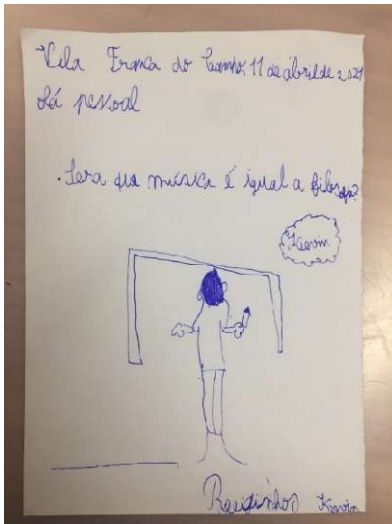 Vila Franca do Campo, 11 de abril de 2021
olá pessoal
. Sera que música é igual a filosofia?
Kevin
Raidinhos Kevin